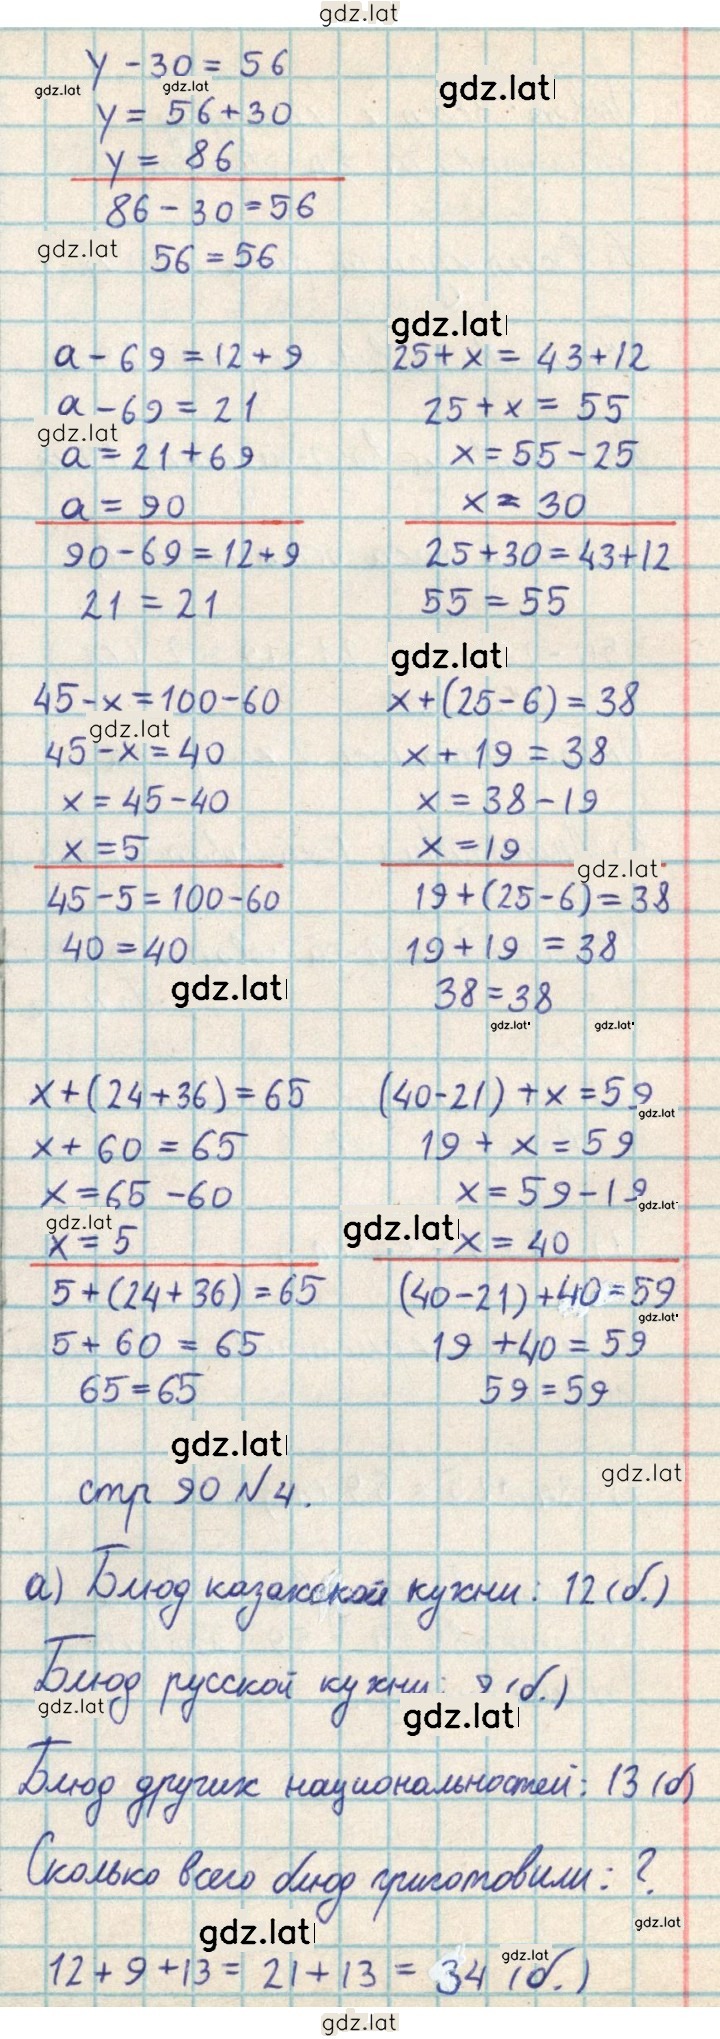 gdz.lat
y - 30 = 56
gdz.lat gdz.lat gdz.lat
y = 56 + 30
y = 86
86 - 30 = 56
gdz.lat
56 = 56
gdz.lat
a - 69 = 12 + 9
a - 69 = 21
gdz.lat
a = 21 + 69
a = 90
90 - 69 = 12 + 9
21 = 21
25 + x = 43 + 12
25 + x = 55
x = 55 - 25
x = 30
25 + 30 = 43 + 12
55 = 55
gdz.lat
45 - x = 100 - 60
gdz.lat
45 - x = 40
x = 45 - 40
x = 5
45 - 5 = 100 - 60
40 = 40
gdz.lat
x + (25 - 6) = 38
x + 19 = 38
x = 38 - 19
x = 19
gdz.lat
19 + (25 - 6) = 38
19 + 19 = 38
38 = 38
gdz.lat gdz.lat
x + (24 + 36) = 65
x + 60 = 65
x = 65 - 60
gdz.lat
x = 5
5 + (24 + 36) = 65
5 + 60 = 65
65 = 65
(40 - 21) + x = 59
gdz.lat
19 + x = 59
x = 59 - 19
gdz.lat
gdz.lat
x = 40
(40 - 21) + 40 = 59
gdz.lat
19 + 40 = 59
59 = 59
gdz.lat
gdz.lat
стр 90 №4.
а) Блюд казахской кухни: 12 (б.)
Блюд русской кухни: (б.)
gdz.lat gdz.lat
Блюд других национальностей: 13 (б)
Сколько всего блюд приготовили: ?
gdz.lat gdz.lat
gdz.lat
12 + 9 + 13 = 21 + 13 = 34 (б.)
gdz.lat